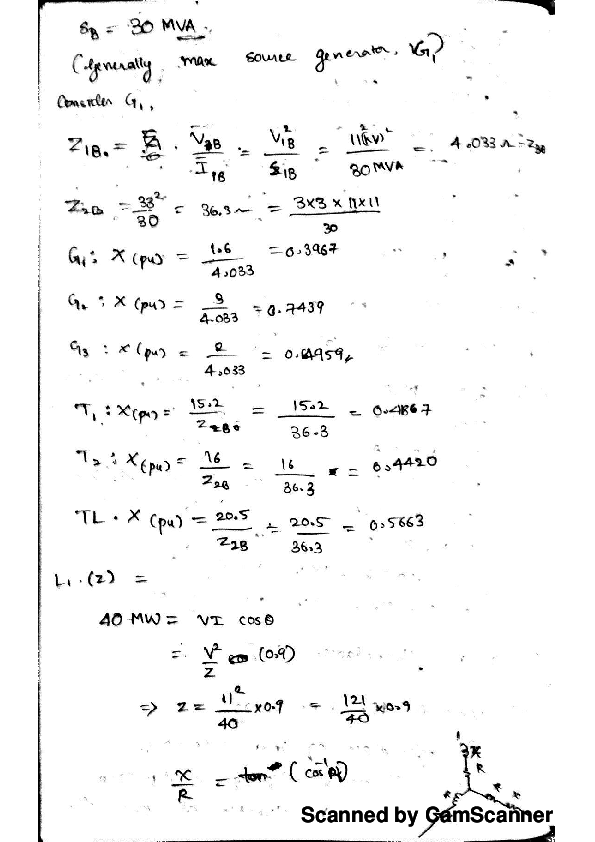 S_B = 30 MVA.
(Generally, max source generator, G₁)
Consider G₁,
Z_1B = V_1B / I_1B = V_1B² / S_1B = 11²(kV)² / 30 MVA = 4.033 Ω = Z_3B
Z_2B = 33² / 30 = 36.3 Ω = 3×3×11×11 / 30
G₁ : X(pu) = 1.6 / 4.033 = 0.3967
G₂ : X(pu) = 3 / 4.033 = 0.7439
G₃ : X(pu) = 2 / 4.033 = 0.4959
T₁ : X(pu) = 15.2 / Z_2B = 15.2 / 36.3 = 0.4187
T₂ : X(pu) = 16 / Z_2B = 16 / 36.3 = 0.4420
TL . X (pu) = 20.5 / Z_2B = 20.5 / 36.3 = 0.5663
L₁ . (Z) =
40 MW = VI cosθ
= V² / Z (0.9)
⇒ Z = 11² / 40 × 0.9 = 121 / 40 × 0.9
X / R = tan (cos⁻¹ )
R
Scanned by CamScanner